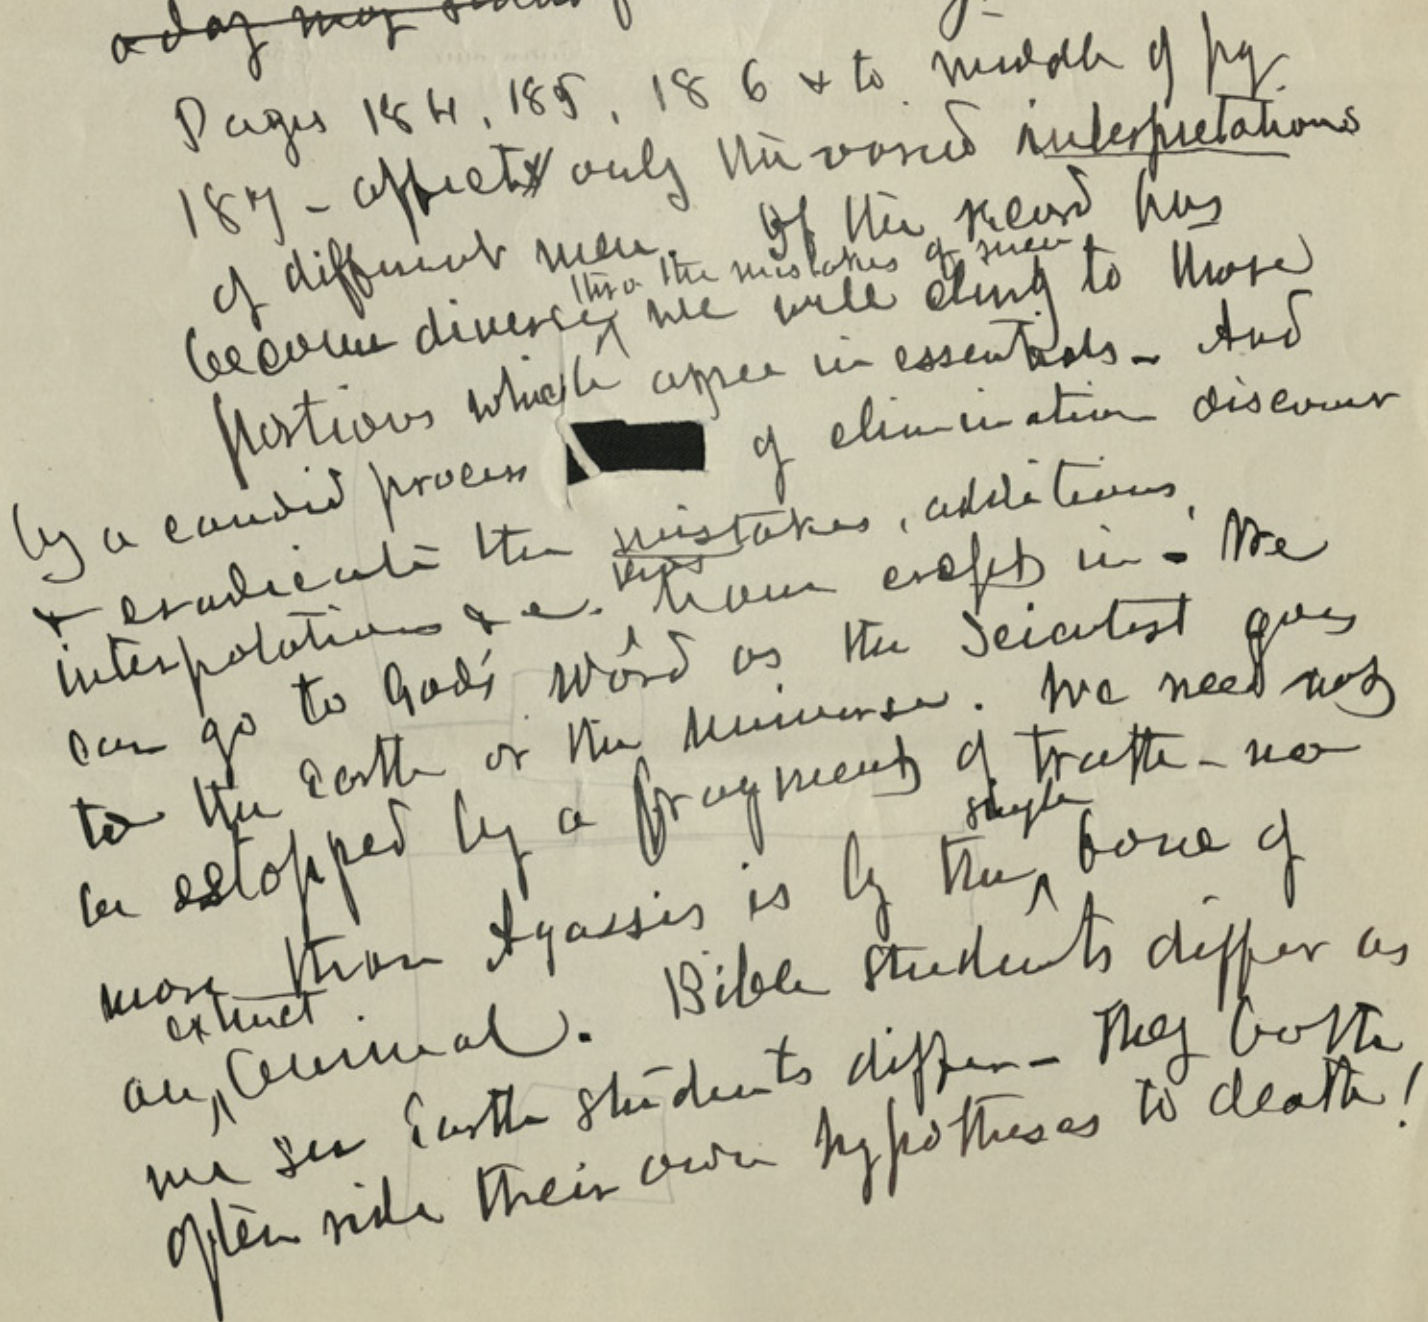 a day may
Pages 184, 185, 186 & to middle of pg.
187 - affects only the varied interpretations
of different men. If the record has
thro the mistakes of men
become diverse, we will cling to those
portions which agree in essentials - And
by a candid process of elimination discover
& eradicate the mistakes, additions,
interpolations &c. have crept in - We
can go to God's Word as the Scientist goes
to the Earth or the Universe. We need not
be estopped by a fragment of truth - no
single
more than Agassis is by the bone of
extinct
an animal. Bible students differ as
we see Earth students differ - They both
often ride their own hypotheses to death!